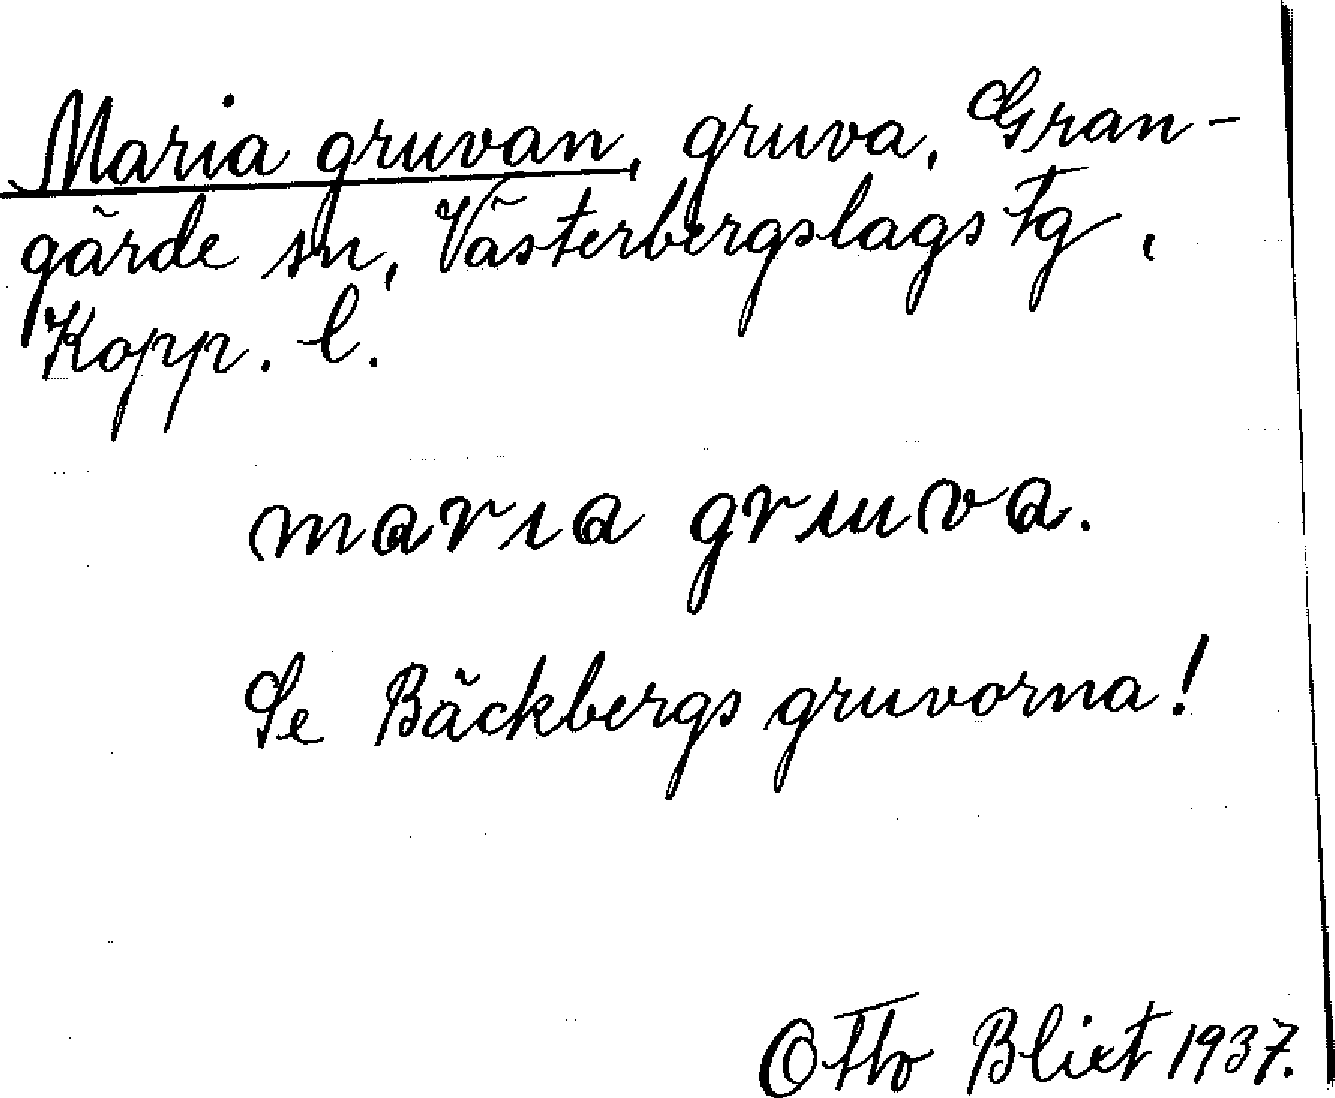 Maria gruvan, gruva, Gran-
gärde sn, Västerbergslags tg,
Kopp. l.
maria gruva.
Se Bäckbergsgruvorna!
Otto Blixt 1937.